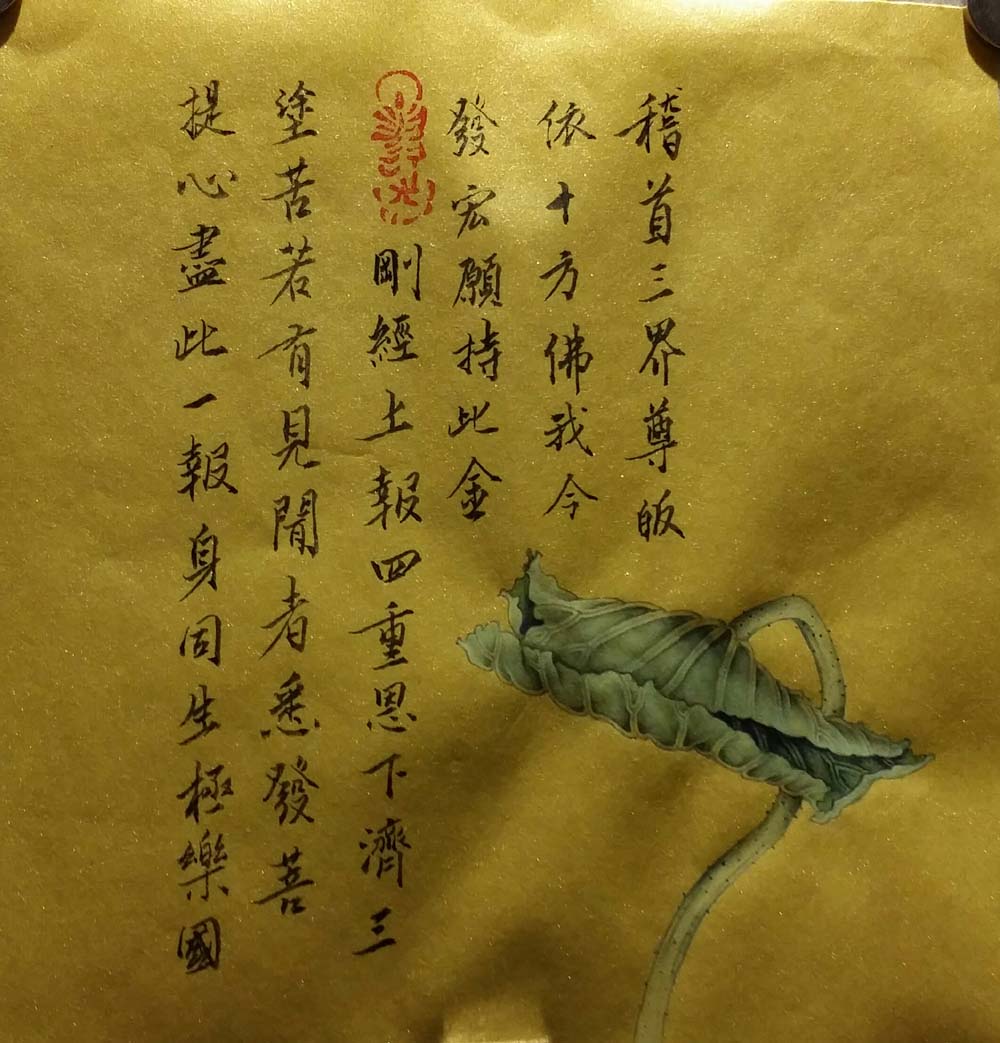 稽首三界尊皈
依十方佛我今
發宏願持此金
剛經上報四重恩下濟三
塗苦若有見聞者悉發菩
提心盡此一報身同生極樂國